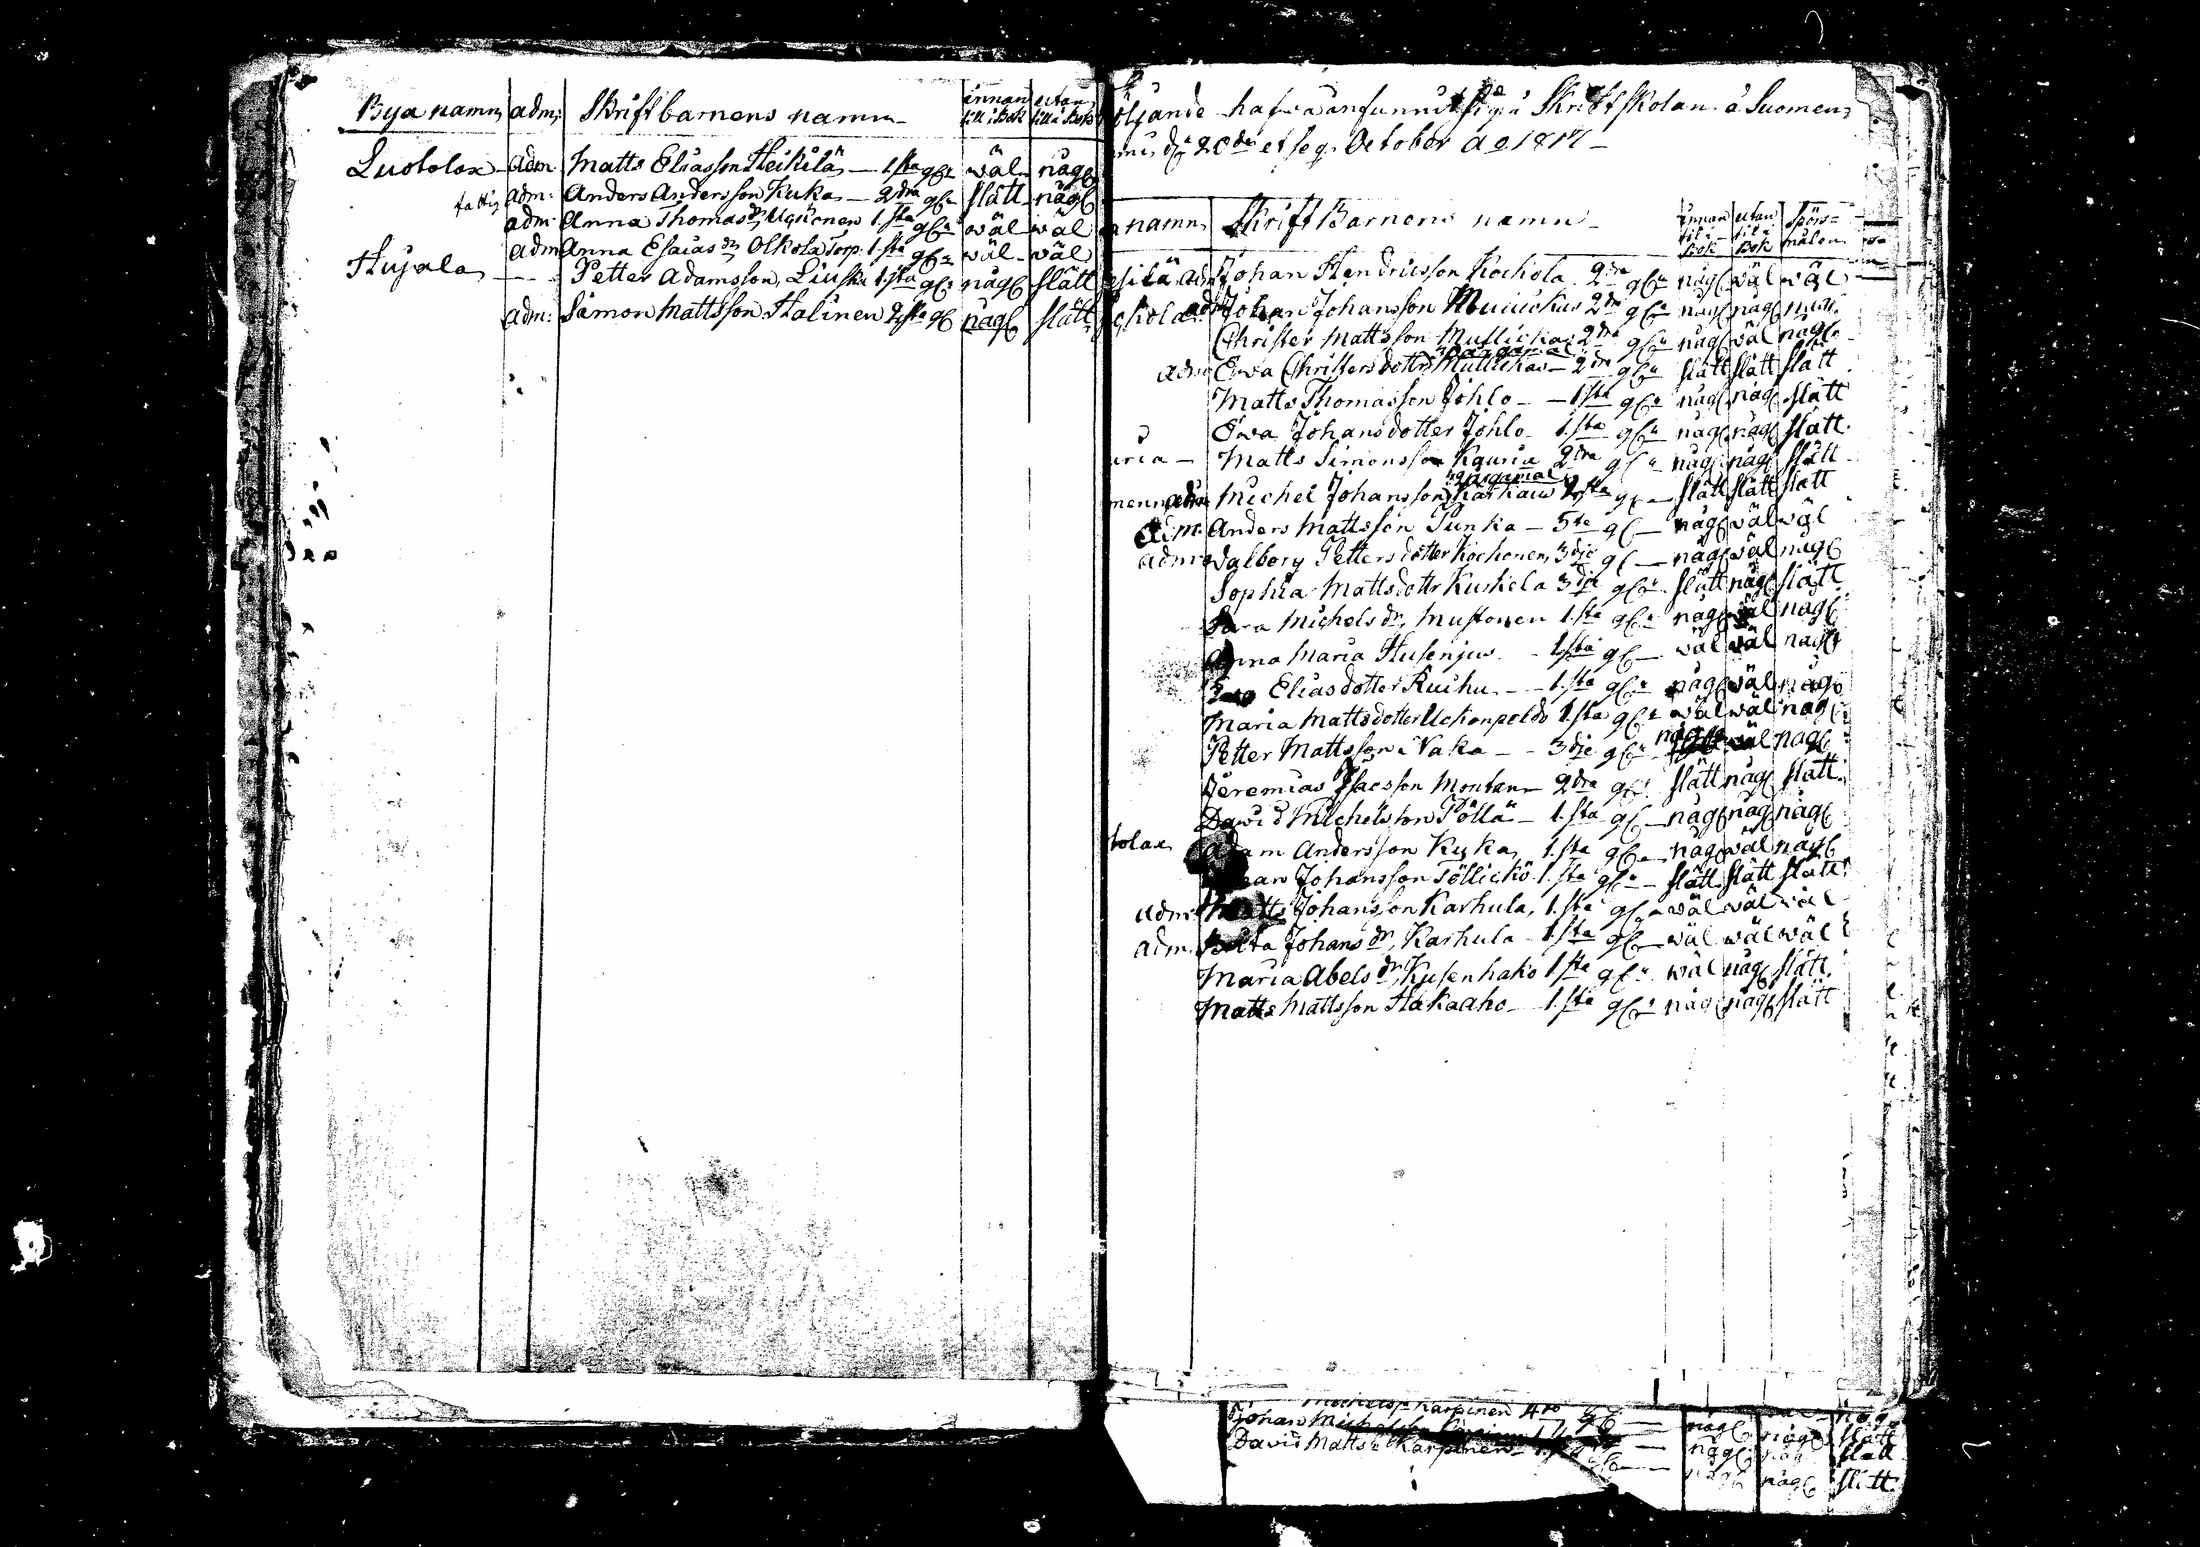 Bya namn adm: Skriftbarnens namn innan till i Bok utan till i Bok
Luotolax adm: Matts Eliasson Heikilä 1.sta gg wäl någl
fattig adm: Anders Andersson Kuka 2dra gg slätt någl
adm: Anna Thomas dr 1.sta gg wäl wäl
adm Anna Esaias dr Olkola Torp. 1.sta gg wäl wäl
Hujala Petter Adamsson Liuska 1.sta gg någl slätt
adm: Simon Mattsson Halinen gg någl slätt
öljande hafwa anfunnit sig i Skriftskolan å Suomen=
d. 20de et seq. October Ao 1817
namn Skrift Barnens namn innan til i Bok utan til i Bok Spörs=målen
adm Johan Hendricsson Kockola 2dra gg någl wäl wäl
adm Johan Johansson 2dra gg någl någl någl
Christer Mattsson Mullickas 2dra gg någl wäl någl
adm Ewa Christersdotter Mullickas 2dra gg slätt slätt slätt
Matts Thomasson Johlo 1sta gg någl någl slätt
Ewa Johansdotter Johlo 1.sta gg någl någl slätt
uria Matts Simonsson Kauria 2dra gg någl någl slätt
adm Michel Johansson gg slätt slätt slätt
adm: Anders Mattsson Punka 5te gg någl wäl wäl
adm: Walborg Pettersdotter Kockonen 3dje gg någl wäl någl
Sophia Mattsdottr Kuskela 3dje gg slätt någl slätt
Sara Michels dr Mustonen 1.sta gg någl wäl någl
Anna Maria Husenjus 1.sta gg wäl wäl någl
Eliasdotter Ruihu 1.sta gg någl wäl någl
Maria Mattsdotter Uckonpeldo 1.sta gg wäl wäl någl
Petter Mattsson Naka 3dje gg någl wäl någl
Jeremias Isacsson Montan 2dra gg slätt någl slätt
Dawid Michelsson Pöllä 1.sta gg någl någl någl
tolax Adam Andersson Kuka 1.sta gg någl wäl någl
Johansson Töllickö 1.sta gg slätt slätt slätt
adm: Matts Johansson Karhula 1.sta gg wäl wäl wäl
adm. Johans dr Karhula 1.sta gg wäl wäl wäl
Maria Abels dr Kusenhako 1.sta gg wäl någl slätt
Matts Mattsson Hakaaho 1.sta gg någl någl slätt
Karpinen
Johan någl någl slätt
David Matts Karpinen någl slätt
någl slätt